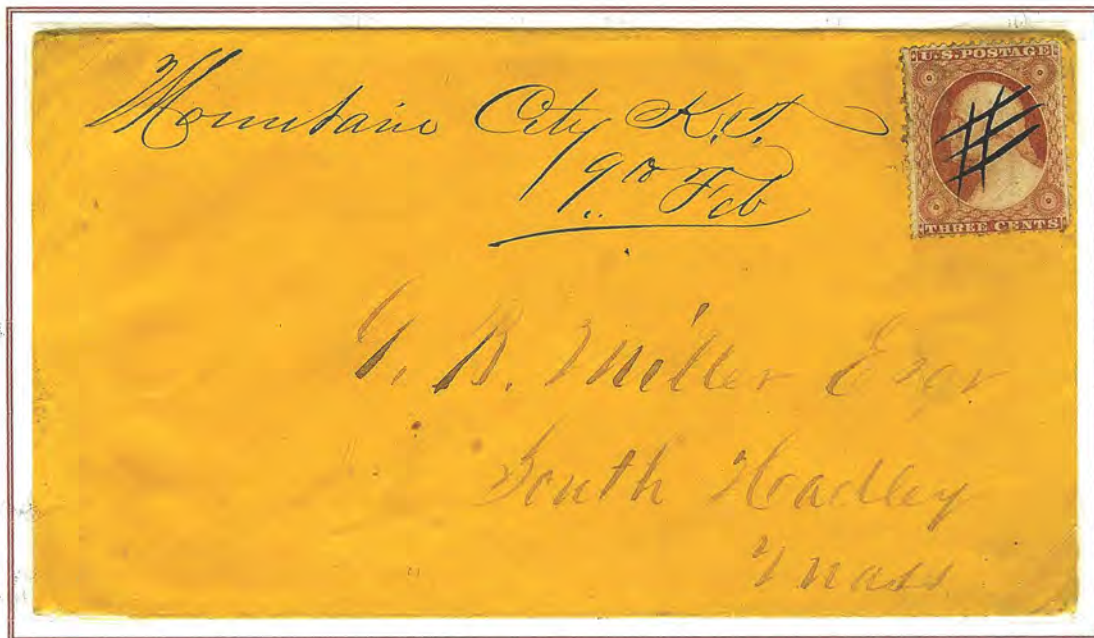 Mountain City K.T.
9th Feb
U.S.POSTAGE
THREE CENTS
G. B. Miller Esqr
South Hadley
Mass